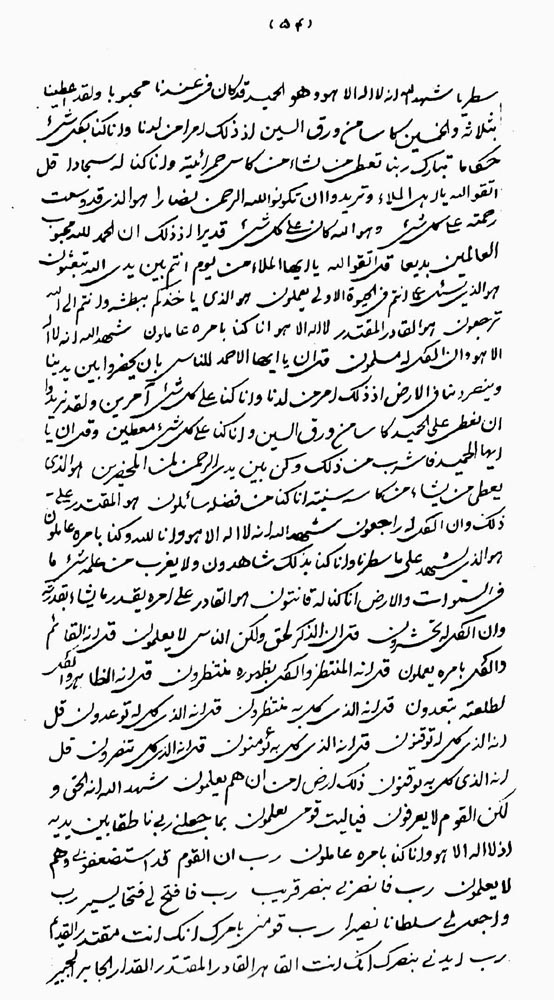 (۵۴)
سطر یا شهد الله انه لا اله الا هو وهو الحمید قد کان فی عندنا محبوبا ولقد اعطینا
بثلاثه والخمسین کاسا من ورق السین اذ ذلک امرا من لدنا وانا کنا بکل شیء
حکاما تبارک ربنا تعطی من نشاء من کاس حمرائیة وانا کنا له سجادا قل
اتقوالله یا اهل الملاء وتریدوا ان تکونوالله الرحمن نصارا هوالذی قد وسعت
رحمته علی کل شیء وهوالله کان علی کل شیء قدیرا اذ ذلک ان الحمد لله محبوب
العالمین بدیعا قل اتقوالله یا ایها الملاء من یوم انتم بین یدی الله تبعثون
هوالذی یسئل عما انتم فی الحیوة الاولی یعملون هوالذی یاخذکم ببطشه وانتم الی الله
ترجعون هوالقادر المقتدر لا اله الا هو انا کنا بامره عاملون شهدالله انه لا اله
الا هو وان الکل له مسلمون قل ان یا ایها الاحمد للناس بان یحضروا بین یدینا
وینصرو فی الارض اذ ذلک امر من لدنا وانا کنا علی کل شیء آمرین ولقد نریدوا
ان نعطی علی الحمید کاسا من ورق السین وانا کنا علی کل شیء معطین وقل ان یا
ایها الحمید فاشرب من ذلک وکن بین یدی الرحمن لمن المحضرین هوالذی
یعطی من یشاء من کاسه سینیته انا کنا من فضله سائلون هو المقتدر علی
ذلک وان الکل له راجعون شهدالله انه لا اله الا هو وانا لله وکنا بامره عاملون
هوالذی یشهد علی ما سطرنا وانا کنا بذلک شاهدون ولا یغرب من علمه شیء ما
فی السموات والارض انا کنا له قانتون هوالقادر علی امره یقدر ما یشاء بقدرته
وان الکل له تحشرون قل ان الذکر لحق ولکن الناس لا یعلمون قل انه القائم
والکل بامره یعملون قل انه المنتظر والکل بظهوره منتظرون قل انه الظاهر والکل
لطلعته یتعدون قل انه الذی کل به منتظرون قل انه الذی کل له توعدون قل
انه الذی کل له توقنون قل انه الذی کل به تؤمنون قل انه الذی کل تنصرون قل
انه الذی کل به توقنون ذلک ارض امن ان هم یعلمون شهدالله انه الحق و
لکن القوم لا یعرفون فیالیت قومی یعلمون بما جعلنی ربی ناطقا بین یدیه
اذ لا اله الا هو وانا کنا بامره عاملون رب ان القوم قد استضعفونی وهم
لا یعلمون رب فانصرنی بنصر قریب رب فافتح لی فتحا یسیر رب
واجعل لی سلطانا نصیرا رب قومنی بامرک انک انت مقتدر القدیم
رب ایدنی بنصرک انک انت القاهر القادر المقتدر القدار الجابر الجبیر